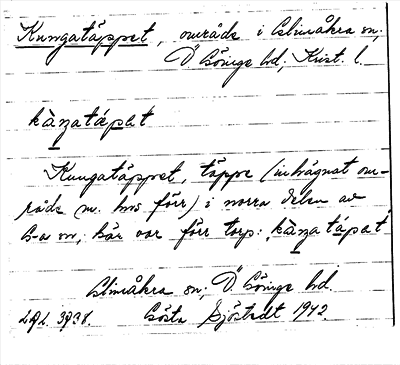 Kungatäppet, område i Glimåkra sn,
Ö Göinge hd; Krist. l.
kàŋatápat
Kungatäppet, täppe (inhägnat om-
råde m. hus förr) i norra delen av
G-a sn, här var förr torp: kàŋa tápat
Glimåkra sn; Ö Göinge hd.
LAL. 3938. Gösta Sjöstedt 1942.